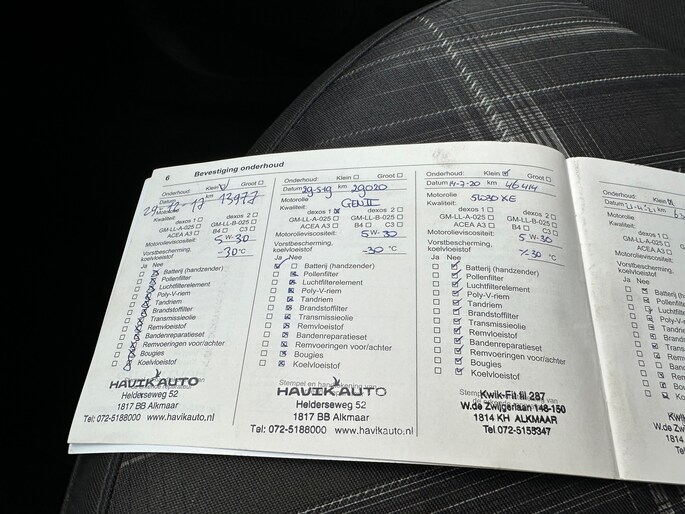 6 Bevestiging onderhoud
Onderhoud: Klein Groot
Datum km 13977
Motorolie
Kwaliteit:
dexos 1 dexos 2
GM-LL-A-025 GM-LL-B-025
ACEA A3 B4 C3
Motorolieviscositeit: 5W-30
Vorstbescherming,
koelvloeistof -30 °C
Ja Nee
Batterij (handzender)
Pollenfilter
Luchtfilterelement
Poly-V-riem
Tandriem
Brandstoffilter
Transmissieolie
Remvloeistof
Bandenreparatieset
Remvoeringen voor/achter
Bougies
Koelvloeistof
HAVIK AUTO
Helderseweg 52
1817 BB Alkmaar
Tel: 072-5188000 www.havikauto.nl
Onderhoud: Klein Groot
Datum 29-5-19 km 29020
Motorolie
Kwaliteit: GEN II
dexos 1 dexos 2
GM-LL-A-025 GM-LL-B-025
ACEA A3 B4 C3
Motorolieviscositeit: 5W-30
Vorstbescherming,
koelvloeistof -30 °C
Ja Nee
Batterij (handzender)
Pollenfilter
Luchtfilterelement
Poly-V-riem
Tandriem
Brandstoffilter
Transmissieolie
Remvloeistof
Bandenreparatieset
Remvoeringen voor/achter
Bougies
Koelvloeistof
Stempel en handtekening van
HAVIK AUTO
Helderseweg 52
1817 BB Alkmaar
Tel: 072-5188000 www.havikauto.nl
Onderhoud: Klein Groot
Datum 14-7-20 km 46414
Motorolie 5W30 XE
Kwaliteit:
dexos 1 dexos 2
GM-LL-A-025 GM-LL-B-025
ACEA A3 B4 C3
Motorolieviscositeit: 5W-30
Vorstbescherming,
koelvloeistof °C
Ja Nee
Batterij (handzender)
Pollenfilter
Luchtfilterelement
Poly-V-riem
Tandriem
Brandstoffilter
Transmissieolie
Remvloeistof
Bandenreparatieset
Remvoeringen voor/achter
Bougies
Koelvloeistof
Kwik-Fit III 287
W.de Zwijgerlaan 148-150
1814 KH ALKMAAR
Tel 072-5155347
Onderhoud:
Datum
Motorolie
Kwaliteit:
GM-LL-A-025
ACEA A3
Motorolieviscositeit:
Vorstbescherming,
koelvloeistof
Ja Nee